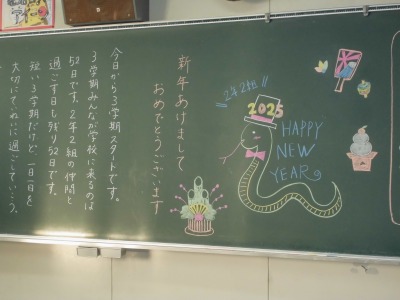 新年あけまして
おめでとうございます
今日から3学期スタートです。
3学期みんなが学校に来るのは
52日です。2年2組の仲間と
過ごす日も残り52日です。
短い3学期だけど、一日一日を
大切にていねいに過ごしていこう。
2年2組!!
2025
HAPPY
NEW
YEAR